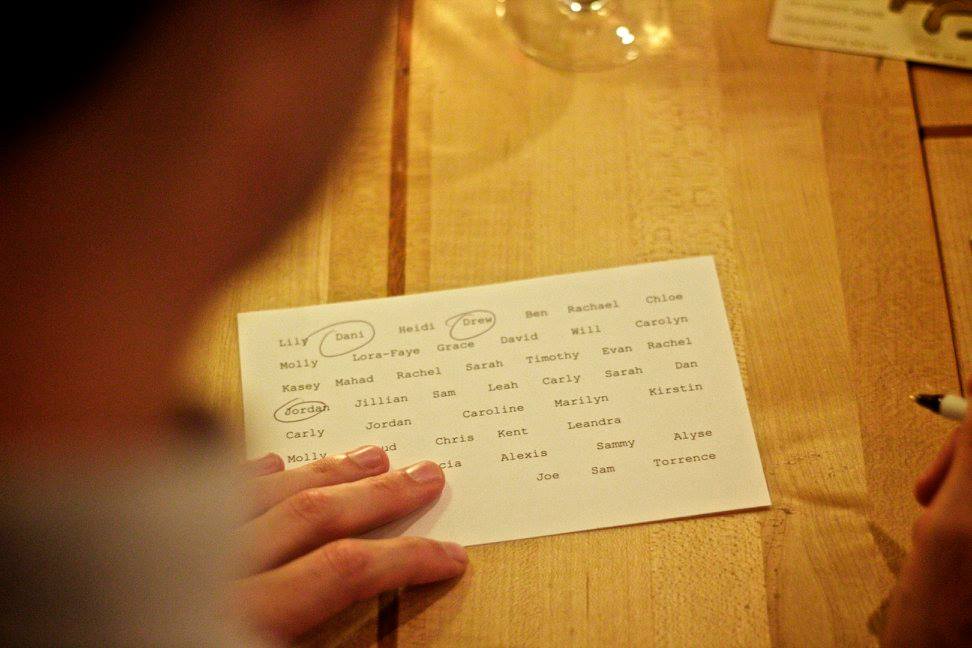 Lily Dani Heidi Drew Ben Rachael Chloe
Molly Lora-Faye Grace David Will Carolyn
Kasey Mahad Rachel Sarah Timothy Evan Rachel
Jordan Jillian Sam Leah Carly Sarah Dan
Carly Jordan Caroline Marilyn Kirstin
Molly ud Chris Kent Leandra
cia Alexis Sammy Alyse
Joe Sam Torrence